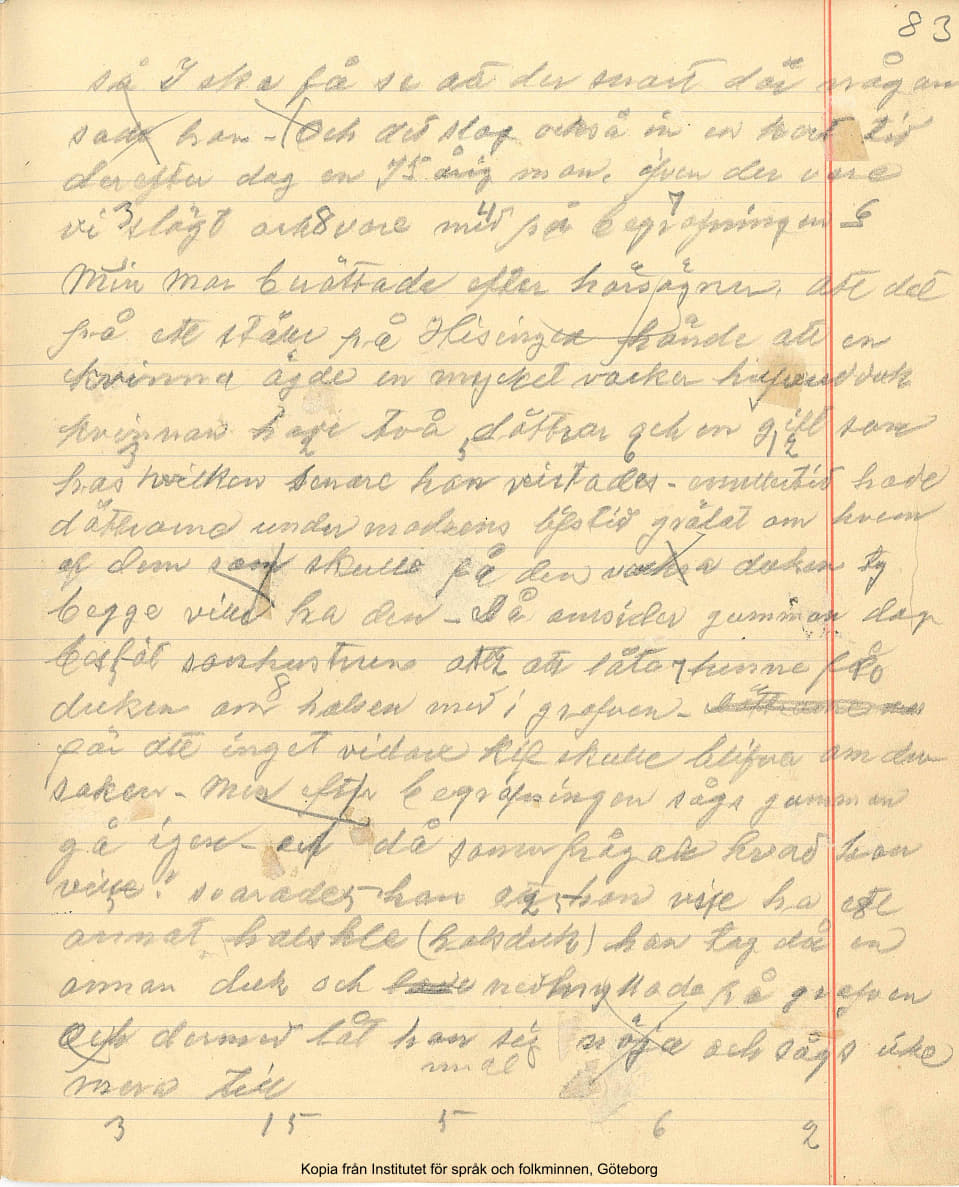 83
så I ska få se att der snart dör någon
sade han - (Och det slog också in en kort tid
derefter dog en 75 årig man, äfven der vore
vi slägt och vore med på begrafningen
Min mor berättade efter hörsägner, att det
på ett ställe på Hisingen hände att en
kvinna ägde en mycket vacker hufvudduk
kvinnan hade två döttrar och en gift son
hos hvilken senare hon vistades - emellertid hade
döttrarna under modrens lifstid grälat om hvem
af dem som skulle få den vackra duken ty
begge ville ha den - Då omsider gumman dog
beslöt sonhustrun att låta henne få
duken om halsen med i grafven -
för att inget vidare kif skulle blifva om den
saken - Men efter begrafningen sågs gumman
gå igen - och då sonen frågade hvad hon
ville? svarade hon att hon ville ha ett
annat halskle (halsduk) han tog då en
annan duk och nedmyllade på grafven
och dermed lät hon sig nöja och sågs icke
mera till
3 15 5 6 2
Kopia från Institutet för språk och folkminnen, Göteborg